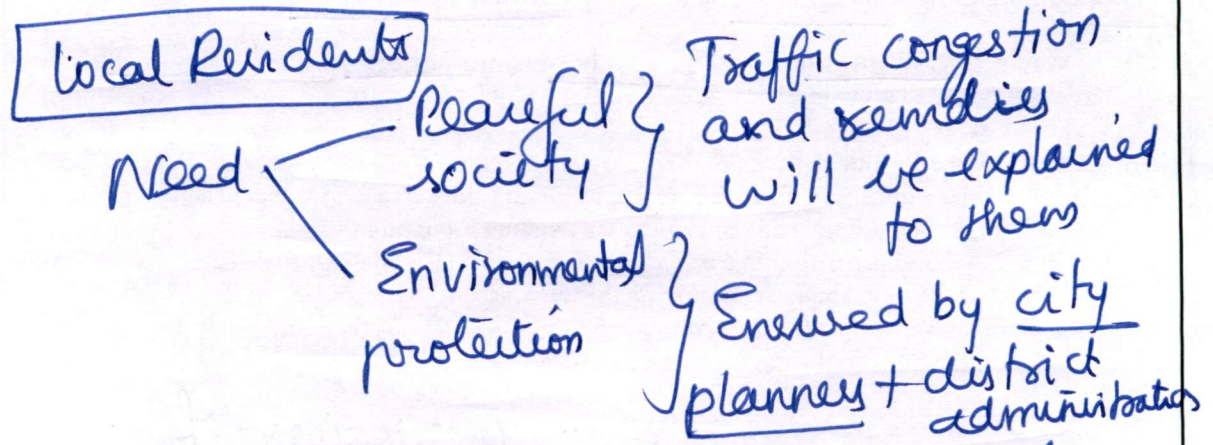 Local Residents
Need
Peaceful
society
Traffic congestion
and remdies
will be explained
to them
Environmental
protection
Ensured by city
planners + district
administration